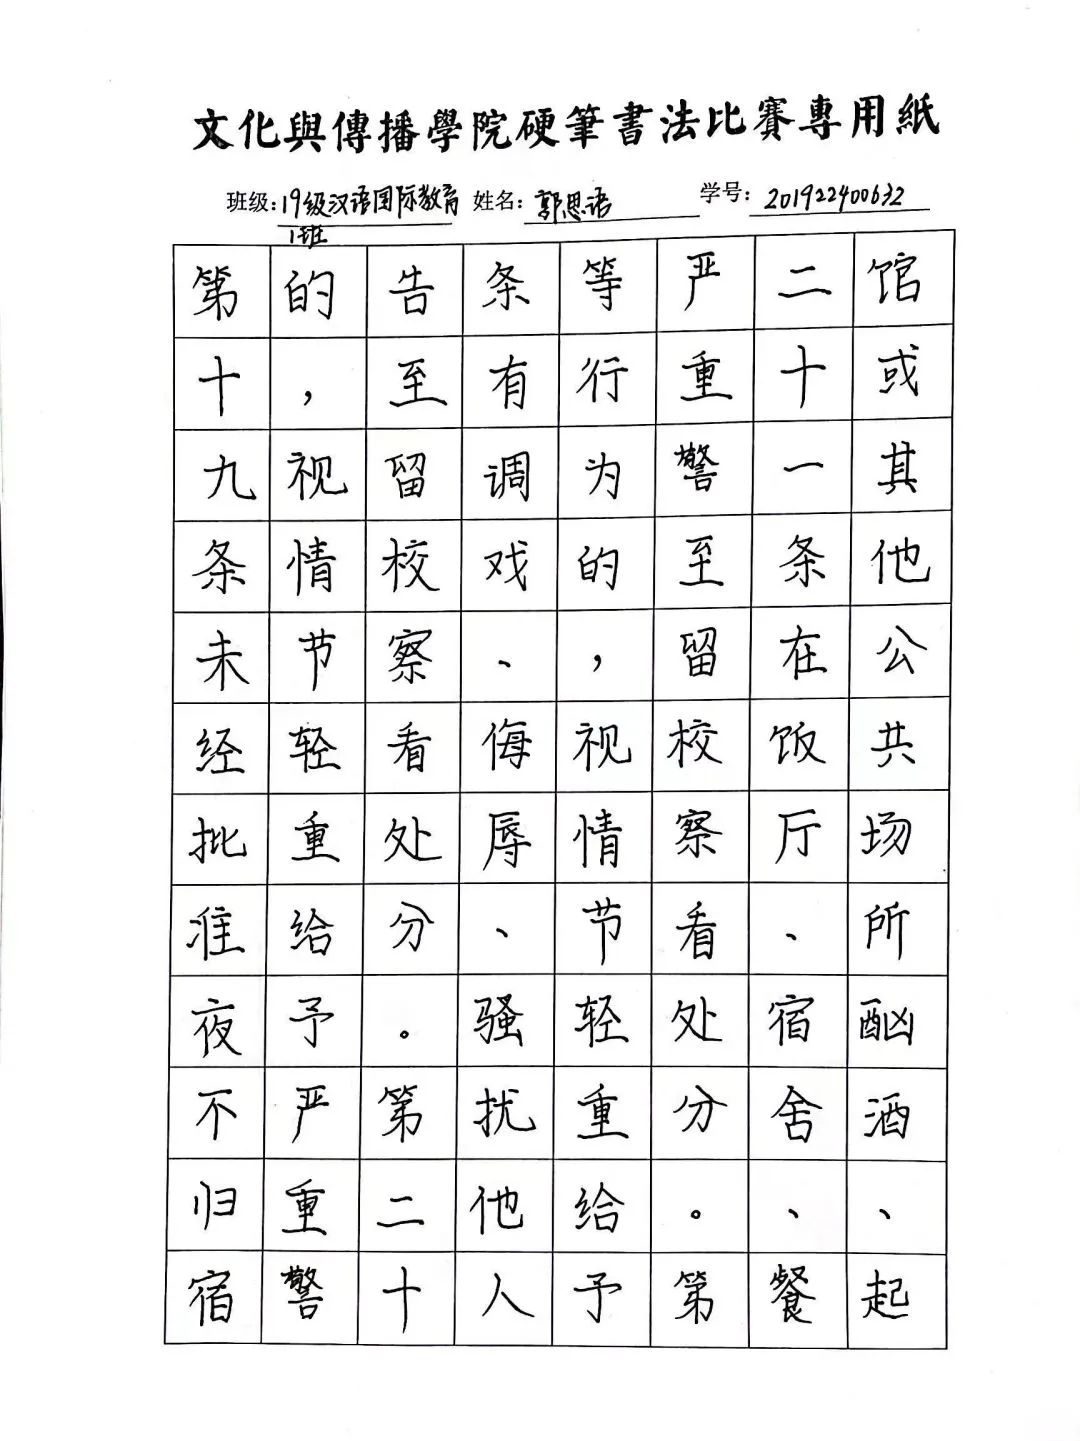 文化與傳播學院硬筆書法比賽專用紙
班级：19级汉语国际教育1班 姓名：郭思语 学号：201922400632
第十九条未经批准夜不归宿
的，视情节轻重给予严重警
告至留校察看处分。第二十
条有调戏、侮辱、骚扰他人
等行为的，视情节轻重给予
严重警至留校察看处分。第
二十一条在饭厅、宿舍、餐
馆或其他公共场所酗酒、起